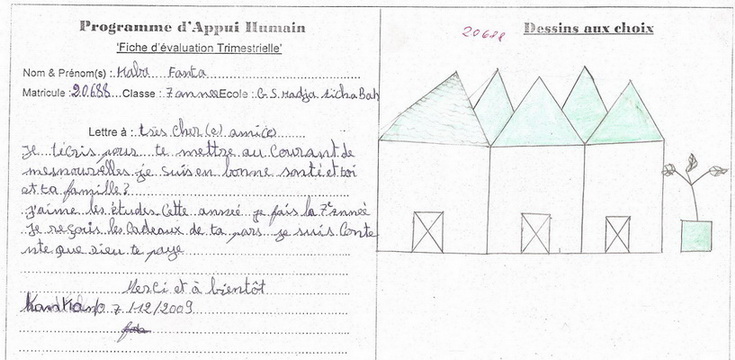 Programme d'Appui Humain
'Fiche d'évaluation Trimestrielle'
Nom & Prénom(s) : Mabri Fanta
Matricule : 20688 Classe : 7 année Ecole : G.S. Hadja Aicha Bah
Lettre à : très cher(e) ami(e)
Je t'écris pour te mettre au courant de
mes nouvelles je suis en bonne santé et toi
et ta famille ?
j'aime les études Cette année je fais la 7e année
Je reçois les Cadeaux de ta pars je suis Conte
nte que Dieu te paye
Merci et à bientôt
7/12/2009
20688
Dessins aux choix